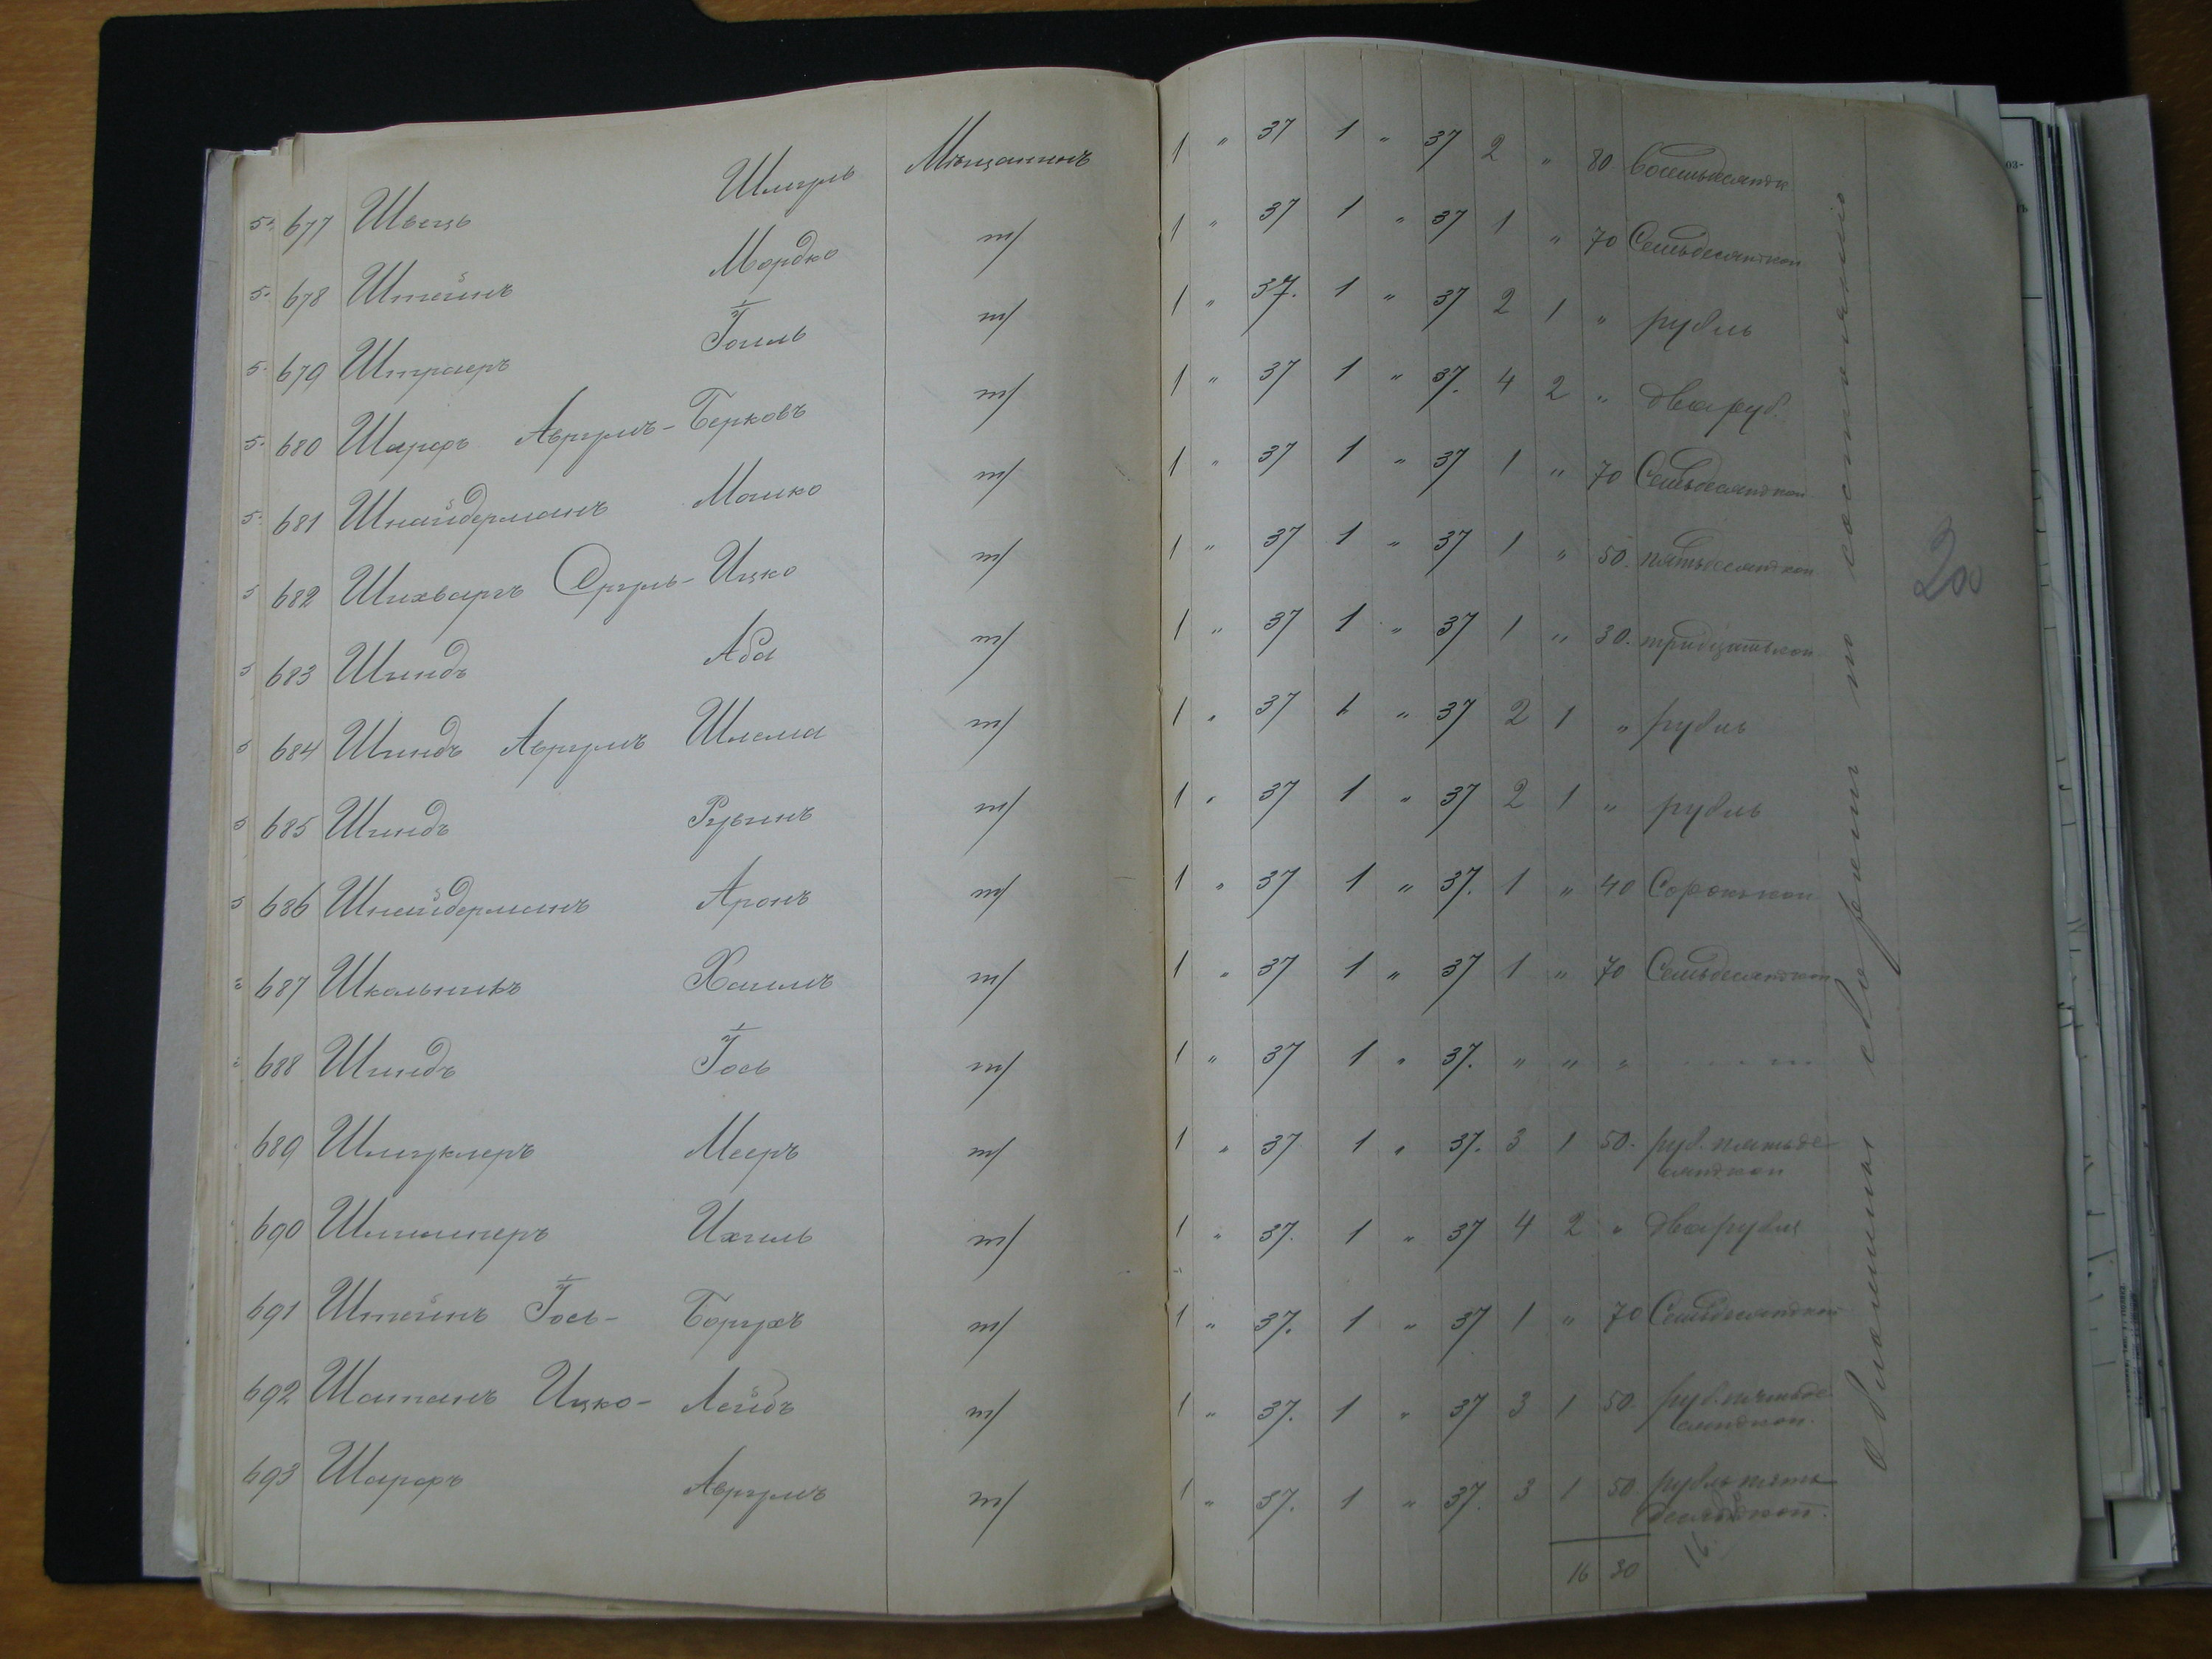 677 Швецъ Шмуль Мѣщанинъ 1 " 37 1 " 37 2 " 80 Восемьдесятъ к
678 Штейнъ Мордко т/ 1 " 37 1 " 37 1 " 70 Семьдесятъ коп
679 Штраеръ Іоиль т/ 1 " 37. 1 " 37 2 1 " рубль
680 Шарфъ Аврумъ-Берковъ т/ 1 " 37 1 " 37. 4 2 " два руб.
681 Шнайдерманъ Мошко т/ 1 " 37 1 " 37 1 " 70 Семьдесятъ коп
682 Шихваргъ Сруль-Ицко т/ 1 " 37 1 " 37 1 " 50. пятьдесятъ коп
683 Шиндъ Аба т/ 1 " 37 1 " 37 1 " 30. тридцать коп
684 Шиндъ Аврумъ Шлема т/ 1 " 37 1 " 37 2 1 " рубль
685 Шиндъ Рувинъ т/ 1 " 37 1 " 37 2 1 " рубль
686 Шнайдерманъ Аронъ т/ 1 " 37 1 " 37. 1 " 40 Сорокъ коп
687 Школьникъ Хаимъ т/ 1 " 37 1 " 37 1 " 70 Семьдесятъ коп
688 Шиндъ Іось т/ 1 " 37 1 " 37. " " "
689 Шмуклеръ Мееръ т/ 1 " 37 1 " 37. 3 1 50. руб. пятьде-
сятъ коп
690 Ихиль т/ 1 " 37. 1 " 37 4 2 " два рубля
691 Штейнъ Іось-Борухъ т/ 1 " 37. 1 " 37 1 " 70 Семьдесятъ коп
692 Шатанъ Ицко-Лейбъ т/ 1 " 37. 1 " 37 3 1 50. руб. пятьде-
сятъ коп.
693 Шарфъ Аврумъ т/ 1 " 37. 1 " 37. 3 1 50. рубль пять
десятъ коп.
16 30
16.
по состоянію